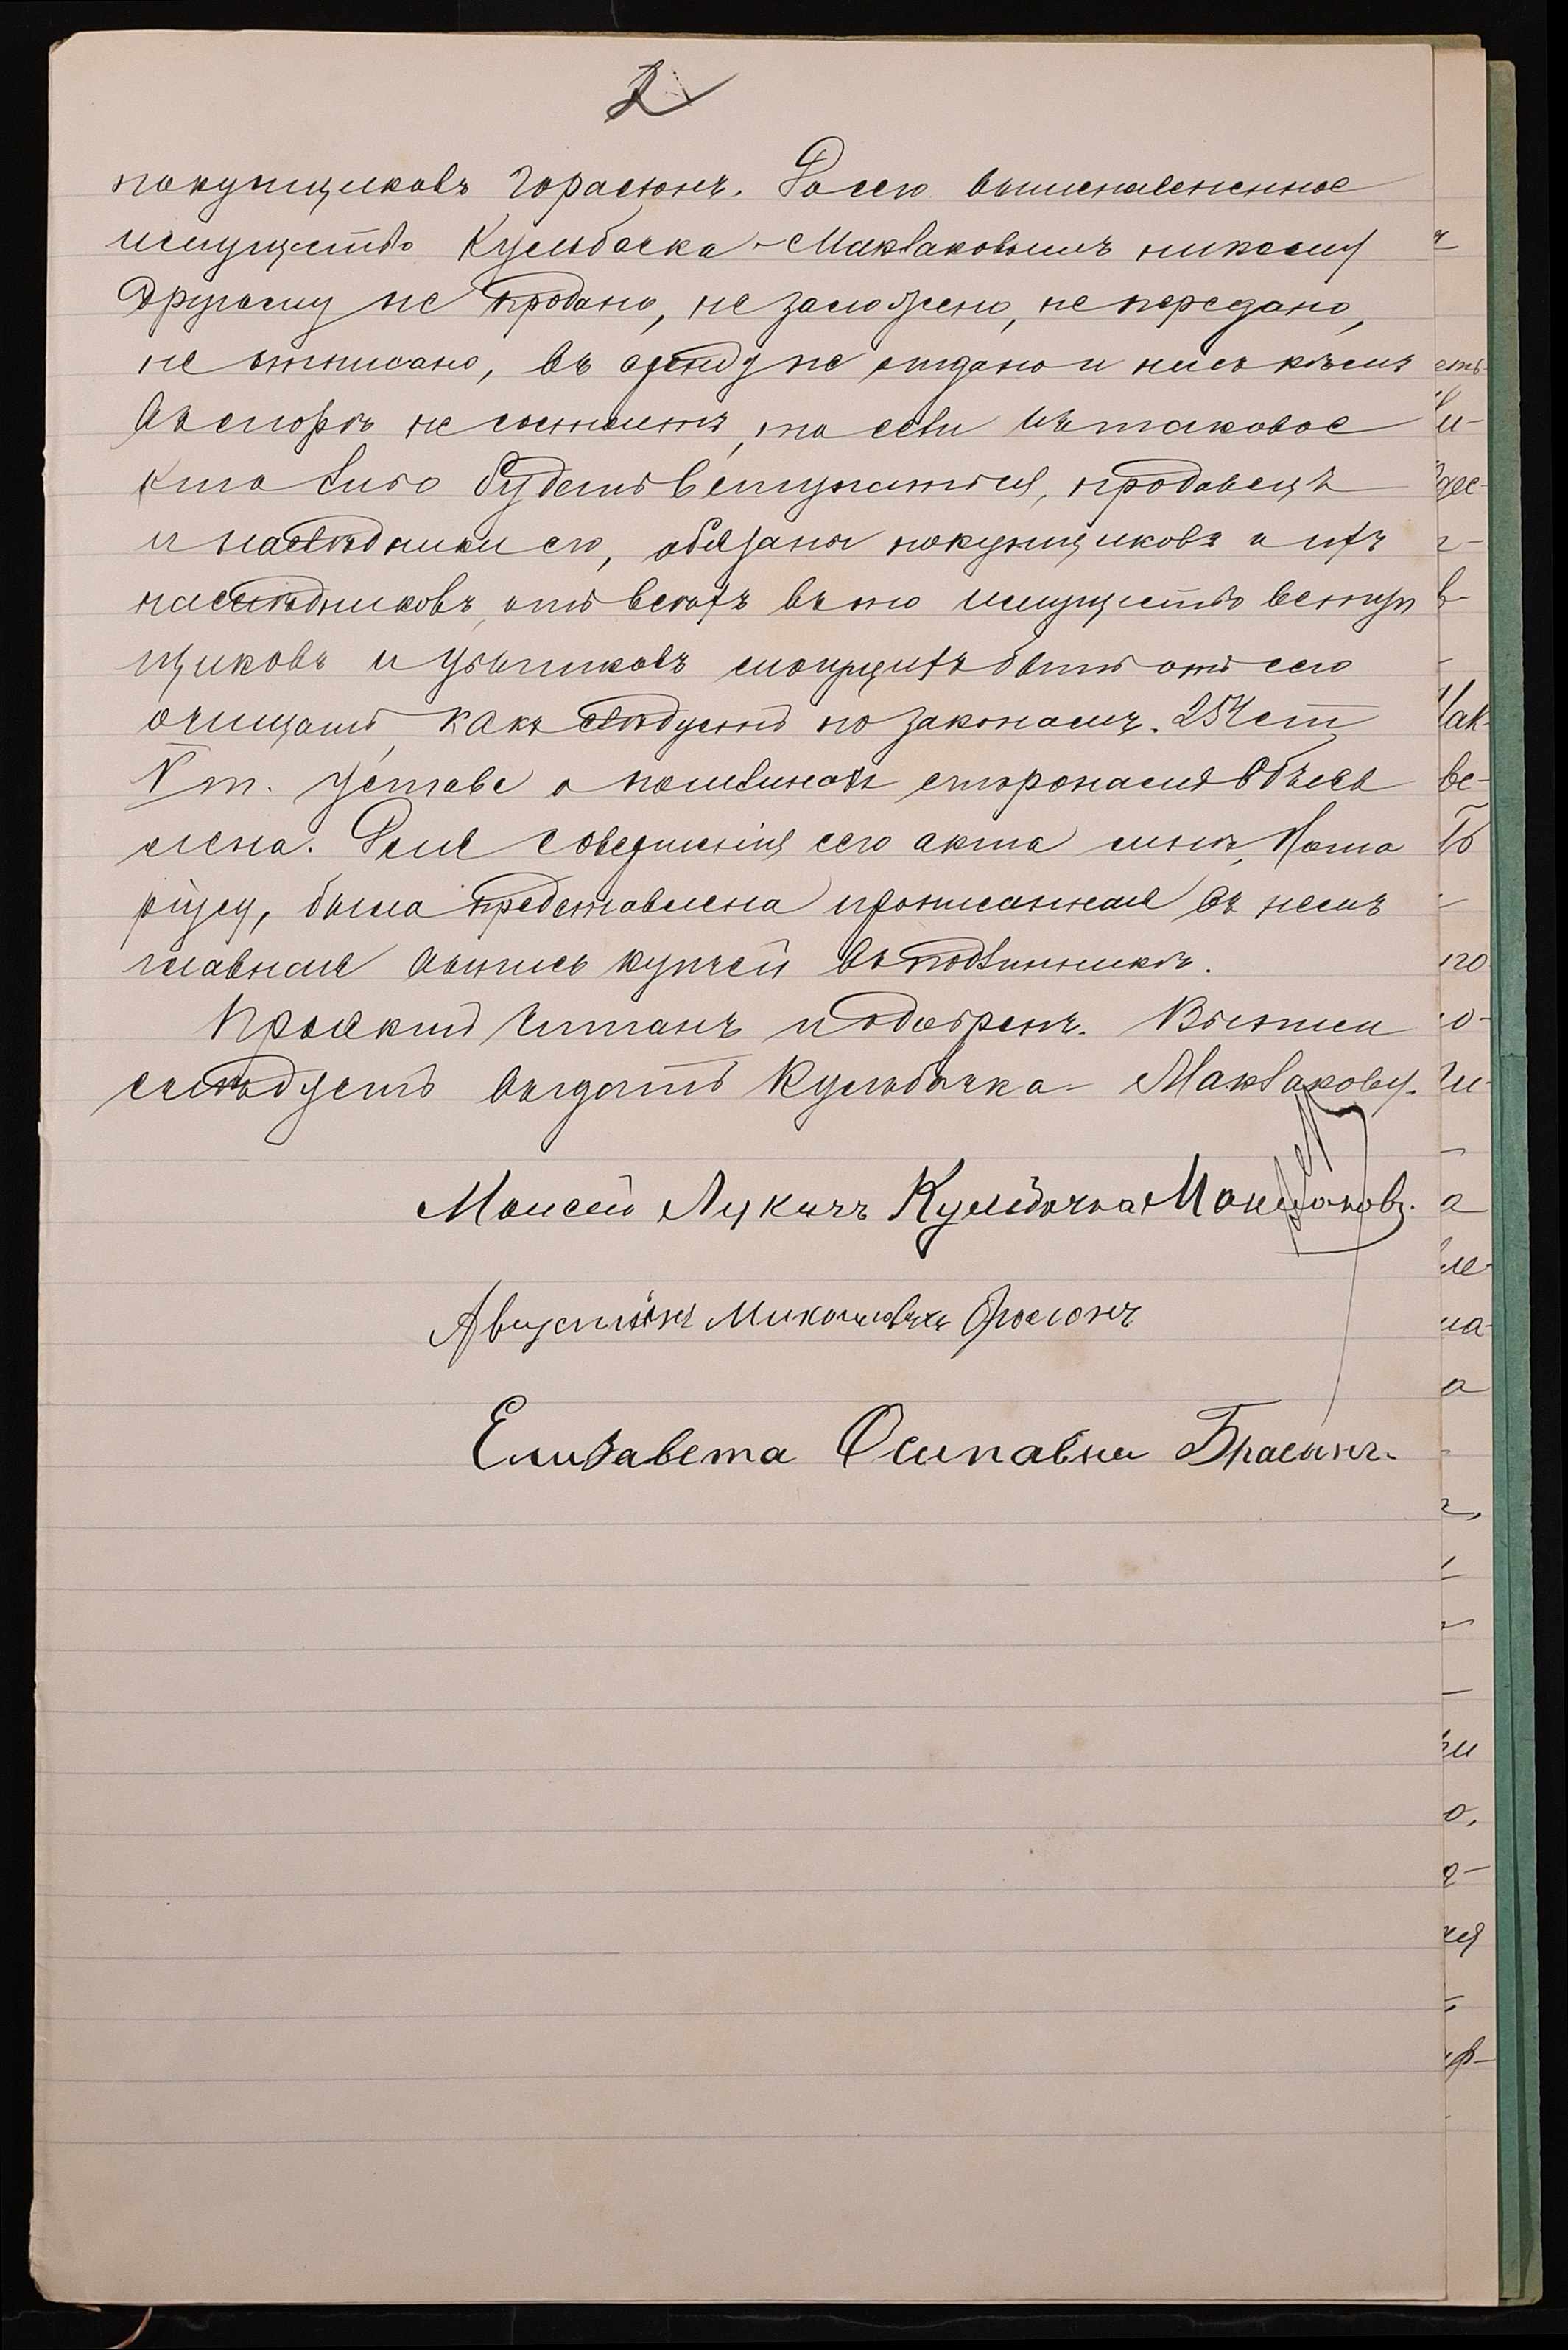 2
покупщиковъ Горасюнъ. До сего вышеназначенное
имущество Кульбачка-Маклаковымъ никому
другому не продано, не заложено, не передано,
не отписано, въ аренду не отдано и ни съ кѣмъ
въ спорѣ не состоитъ, но если въ таковое
кто либо будетъ вступаться, продавецъ
и наслѣдники его, обязаны покупщиковъ и ихъ
наслѣдниковъ, отъ всѣхъ въ то имущество вступ
щиковъ и убытковъ могущихъ быть отъ сего
очищать, какъ слѣдуетъ по законамъ. 254 ст
V т. Устава о пошлинахъ сторонамъ объяв
лена. Для совершенія сего акта мнѣ, Нота
ріусу, была представлена прописанная въ немъ
главная выпись купчей въ подлинникѣ.
Проектъ читанъ и одобренъ. Выписи
слѣдуетъ выдать Кульбачка-Маклакову.
Моисей Лукичъ Кульбачка Маклаковъ.
Августинъ Миколаевичъ
Елизавета Осиповна